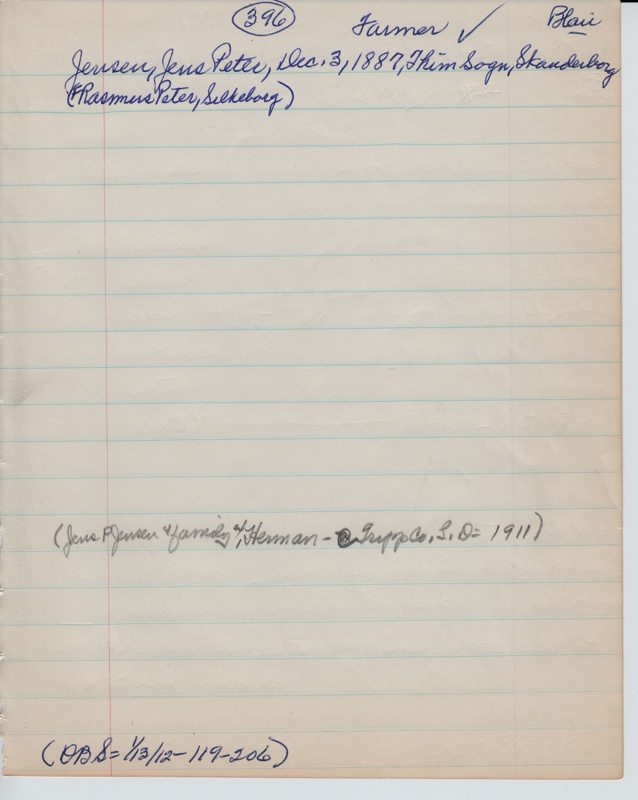 396 Farmer ✓ Blair
Jensen, Jens Peter, Dec. 3, 1887, Thim Sogn, Skanderborg
(Rasmus Peter, Silkeborg)
(Jens P Jensen & family of Herman - Tripp Co., S. D = 1911)
(OBS = 1/13/12 - 119-206)